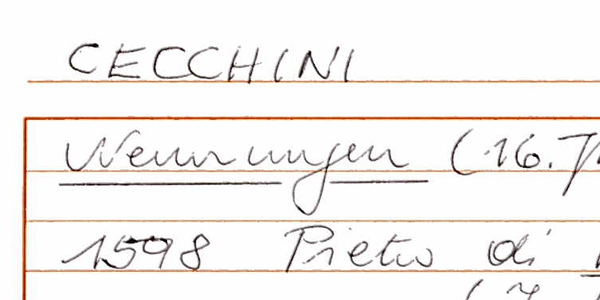 CECCHINI
Nennungen (16.
1598 Pietro di